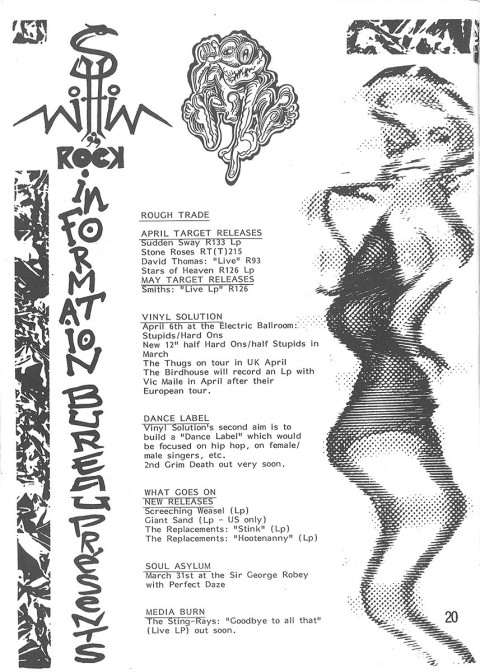 Shittin
is
ROCK
inFORMATION BUREAU PRESENTS
ROUGH TRADE
APRIL TARGET RELEASES
Sudden Sway R133 Lp
Stone Roses RT(T)215
David Thomas: "Live" R93
Stars of Heaven R126 Lp
MAY TARGET RELEASES
Smiths: "Live Lp" R126
VINYL SOLUTION
April 6th at the Electric Ballroom:
Stupids/Hard Ons
New 12" half Hard Ons/half Stupids in
March
The Thugs on tour in UK April
The Birdhouse will record an Lp with
Vic Maile in April after their
European tour.
DANCE LABEL
Vinyl Solution's second aim is to
build a "Dance Label" which would
be focused on hip hop, on female/
male singers, etc.
2nd Grim Death out very soon.
WHAT GOES ON
NEW RELEASES
Screeching Weasel (Lp)
Giant Sand (Lp - US only)
The Replacements: "Stink" (Lp)
The Replacements: "Hootenanny" (Lp)
SOUL ASYLUM
March 31st at the Sir George Robey
with Perfect Daze
MEDIA BURN
The Sting-Rays: "Goodbye to all that"
(Live LP) out soon.
20